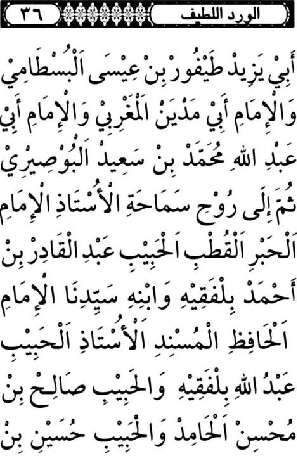 الورد اللطيف ٣٦
أَبِيْ يَزِيْدِ طَيْفُوْرِ بْنِ عِيْسَى اَلْبُسْطَامِيْ
وَالْإِمَامِ أَبِيْ مَدْيَنَ الْمَغْرِبِيْ وَالْإِمَامِ أَبِيْ
عَبْدِ اللهِ مُحَمَّدِ بْنِ سَعِيْدِ الْبُوْصِيْرِيْ
ثُمَّ إِلَى رُوْحِ سَمَاحَةِ الْأُسْتَاذِ الْإِمَامِ
الْحَبْرِ اَلْقُطْبِ اَلْحَبِيْبِ عَبْدِ الْقَادِرِ بْنِ
أَحْمَدْ بِلْفَقِيْهِ وَابْنِهِ سَيِّدِنَا الْإِمَامِ
اَلْحَافِظِ الْمُسْنِدِ الْأُسْتَاذِ اَلْحَبِيْبِ
عَبْدُ اللهِ بِلْفَقِيْهِ وَالْحَبِيْبِ صَالِحْ بِنْ
مُحْسِنْ اَلْحَامِدْ وَالْحَبِيْبِ حُسَيْنِ بْنِ